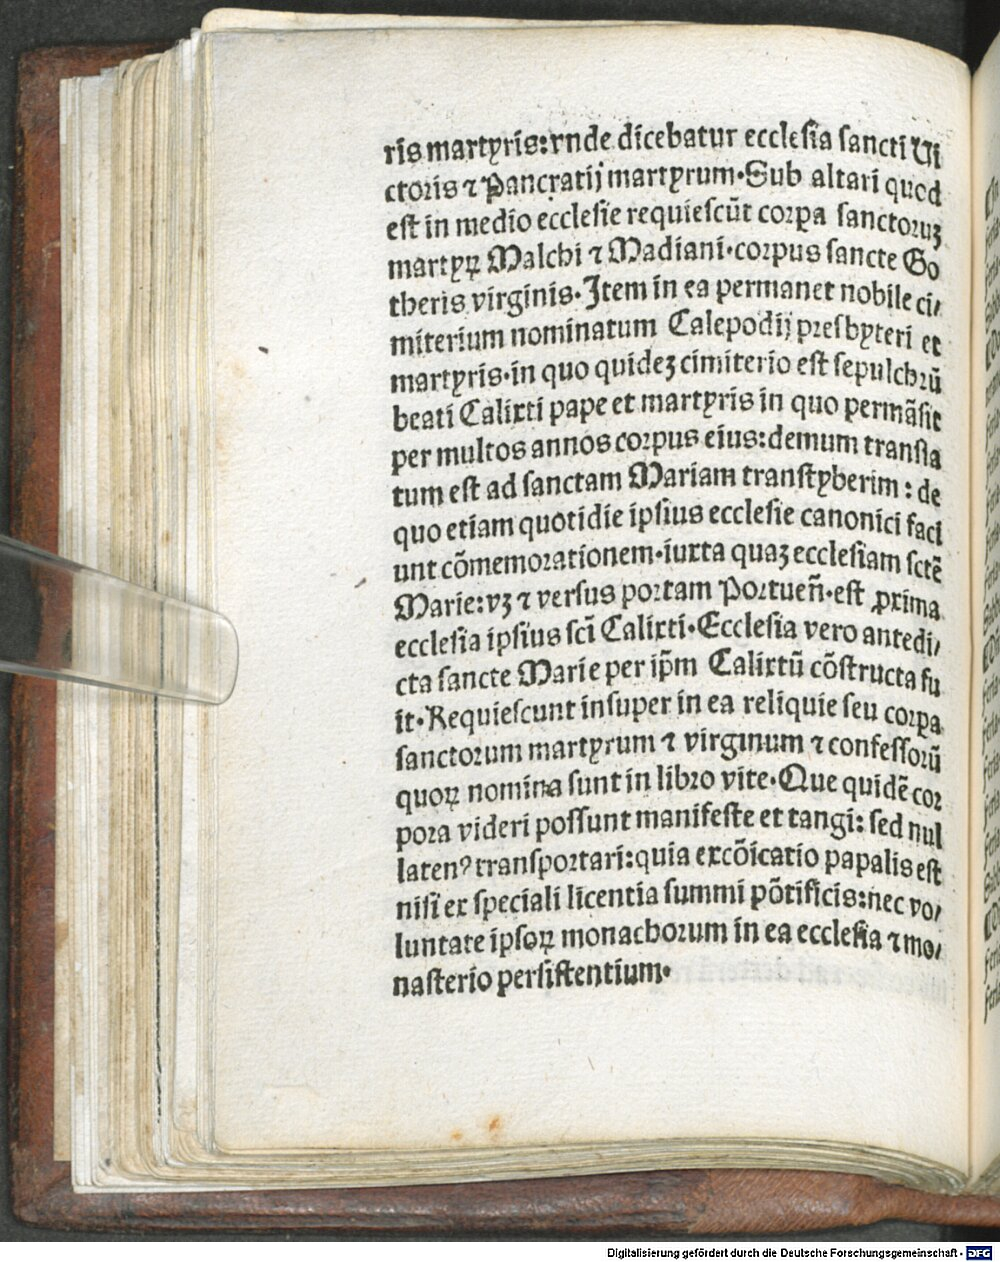 ris martyris: vnde dicebatur ecclesia sancti Ui
ctoris ⁊ Pancratij martyrum. Sub altari quod
est in medio ecclesie requiescūt corpa sanctoruꝫ
martyꝝ Malchi ⁊ Madiani. corpus sancte Go
theris virginis. Item in ea permanet nobile ci/
miterium nominatum Calepodij presbyteri et
martyris. in quo quideꝫ cimiterio est sepulchrū
beati Calixti pape et martyris in quo permāsit
per multos annos corpus eius: demum transla
tum est ad sanctam Mariam transtyberim: de
quo etiam quotidie ipsius ecclesie canonici faci
unt cōmemorationem. iuxta quaꝫ ecclesiam sctē
Marie: vꝫ ⁊ versus portam Portueñ. est ꝓxima
ecclesia ipsius sci̅ Calixti. Ecclesia vero antedi/
cta sancte Marie per ip̄m Calixtū cōstructa fu
it. Requiescunt insuper in ea reliquie seu corpa
sanctorum martyrum ⁊ virginum ⁊ confessorū
quoꝝ nomina sunt in libro vite. Que quidē cor
pora videri possunt manifeste et tangi: sed nul
latenꝰ transportari: quia excōicatio papalis est
nisi ex speciali licentia summi pōtificis: nec vo/
luntate ipsoꝝ monachorum in ea ecclesia ⁊ mo/
nasterio persistentium.
Digitalisierung gefördert durch die Deutsche Forschungsgemeinschaft - DFG